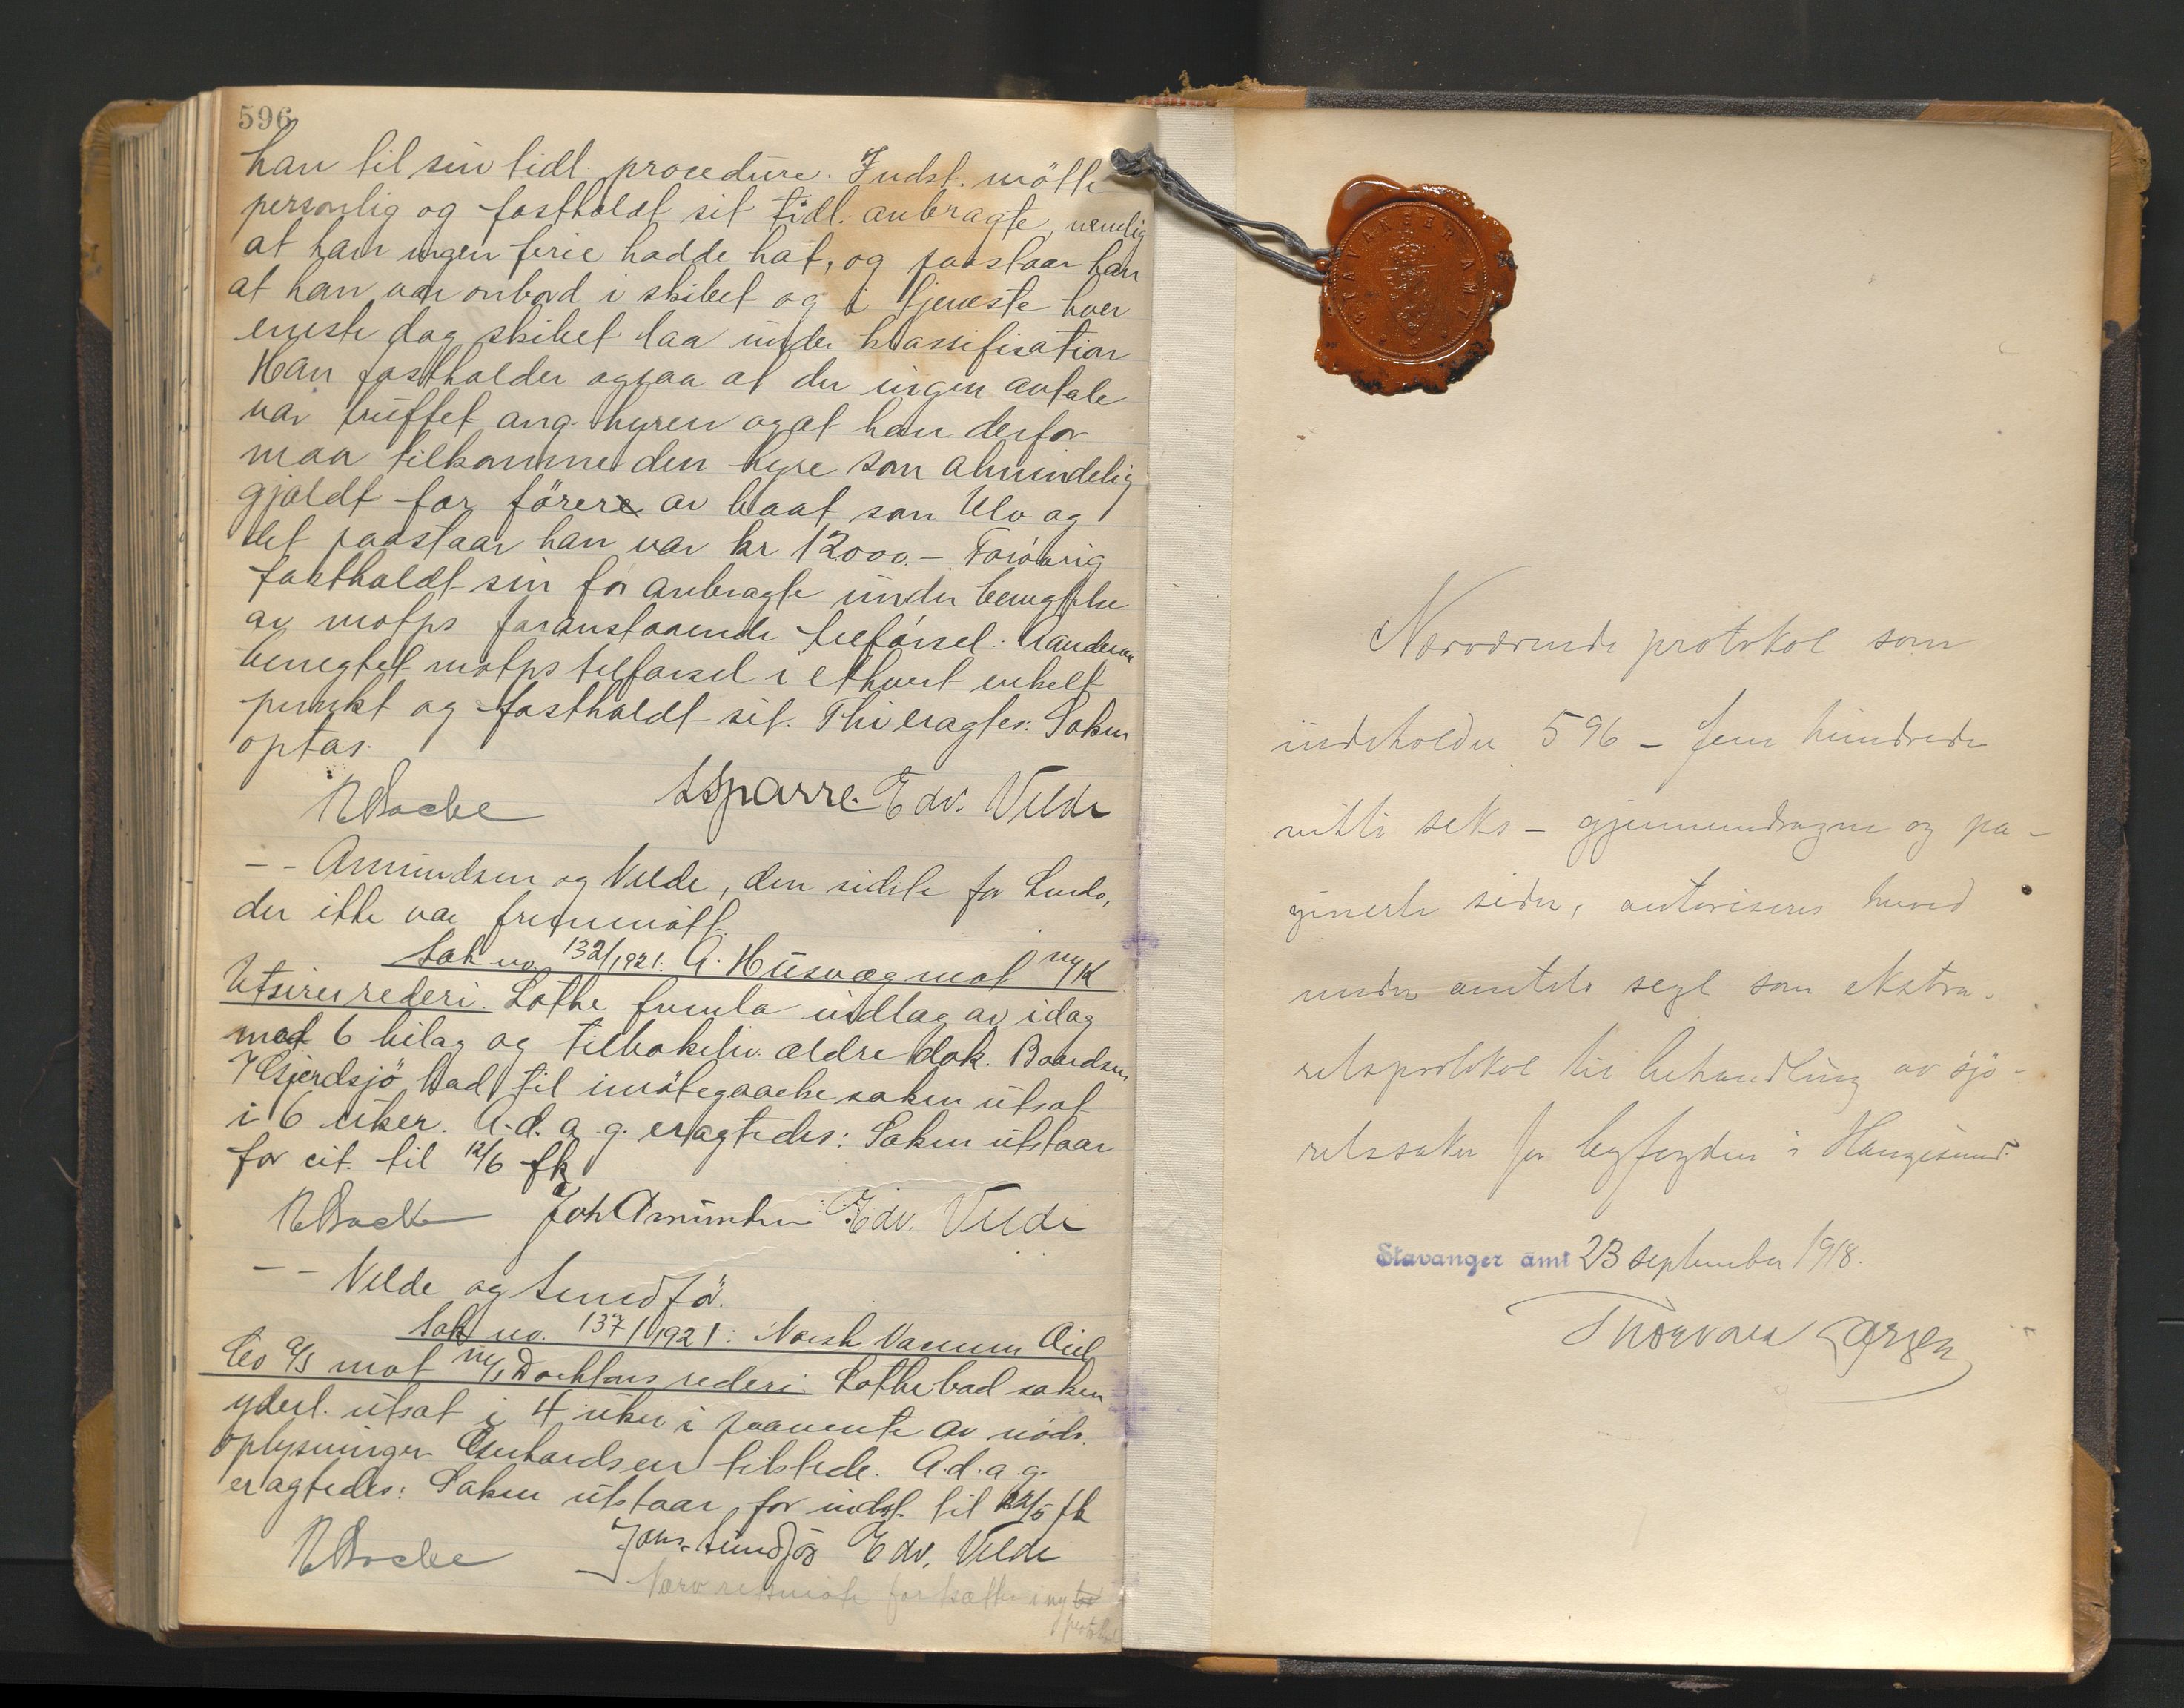 596
han til sin tidl. procedure. Indst. mötte
personlig og fastholdt sit tidl. anbragte, nemlig
at han ingen ferie hadde hat, og paastaar han
at han var ombord i skibet og i tjeneste hver
eneste dag skibet laa under klassifikation
Han fastholder ogsaa at der ingen avtale
var truffet ang. hyren og at han derfor
maa tilkomme den hyre som almindelig
gjaldt for förere av baat som Ulv og
det paastaar han var kr 12000.- Forövrig
fastholdt sin för anbragte under benegtelse
av motps foranstaaende tilförsel.
benegtet motps tilförsel i ethvert enkelt
punkt og fastholdt sit. Thi eragtes: Saken
optas.
Sparre. Edv. Velde
-- Amundsen og Velde, den sidste for
der ikke var fremmött.
Sak no. 132/1921: A. Husvæg mot m/K
Utsires rederi. Lothe fremla indlæg av idag
med 6 bilag og tilbakelev. ældre dok. Baardsen
Gjerdsjö bad til imötegaaelse saken utsat
i 6 uker. A.d.a.g. eragtedes: Saken utstaar
for cit. til 12/6 fk
Joh Amundsen Edv. Velde
-- Velde og Sundför.
Sak no. 137/1921: Norsk Vacuum Oil
Co a/s mot rederi. Lothe bad saken
yderl. utsat i 4 uker i paavente av nödv.
oplysninger. tilstede. A.d.a.g.
eragtedes: Saken utstaar for indst. til 22/5 fk
Johs. Sundför Edv. Velde
Nærv retsmöte fortsætter i ny
protokol
STAVANGER AMT
Nærværende protokol som
indeholder 596 - fem hundrede
nitti seks - gjennemdragne og pa-
ginerte sider, autoriseres herved
under amtets segl som ekstra-
retsprotokol til behandling av sjö-
retssaker for byfogden i Haugesund.
Stavanger amt 23 september 1918.
Thorvald Larsen